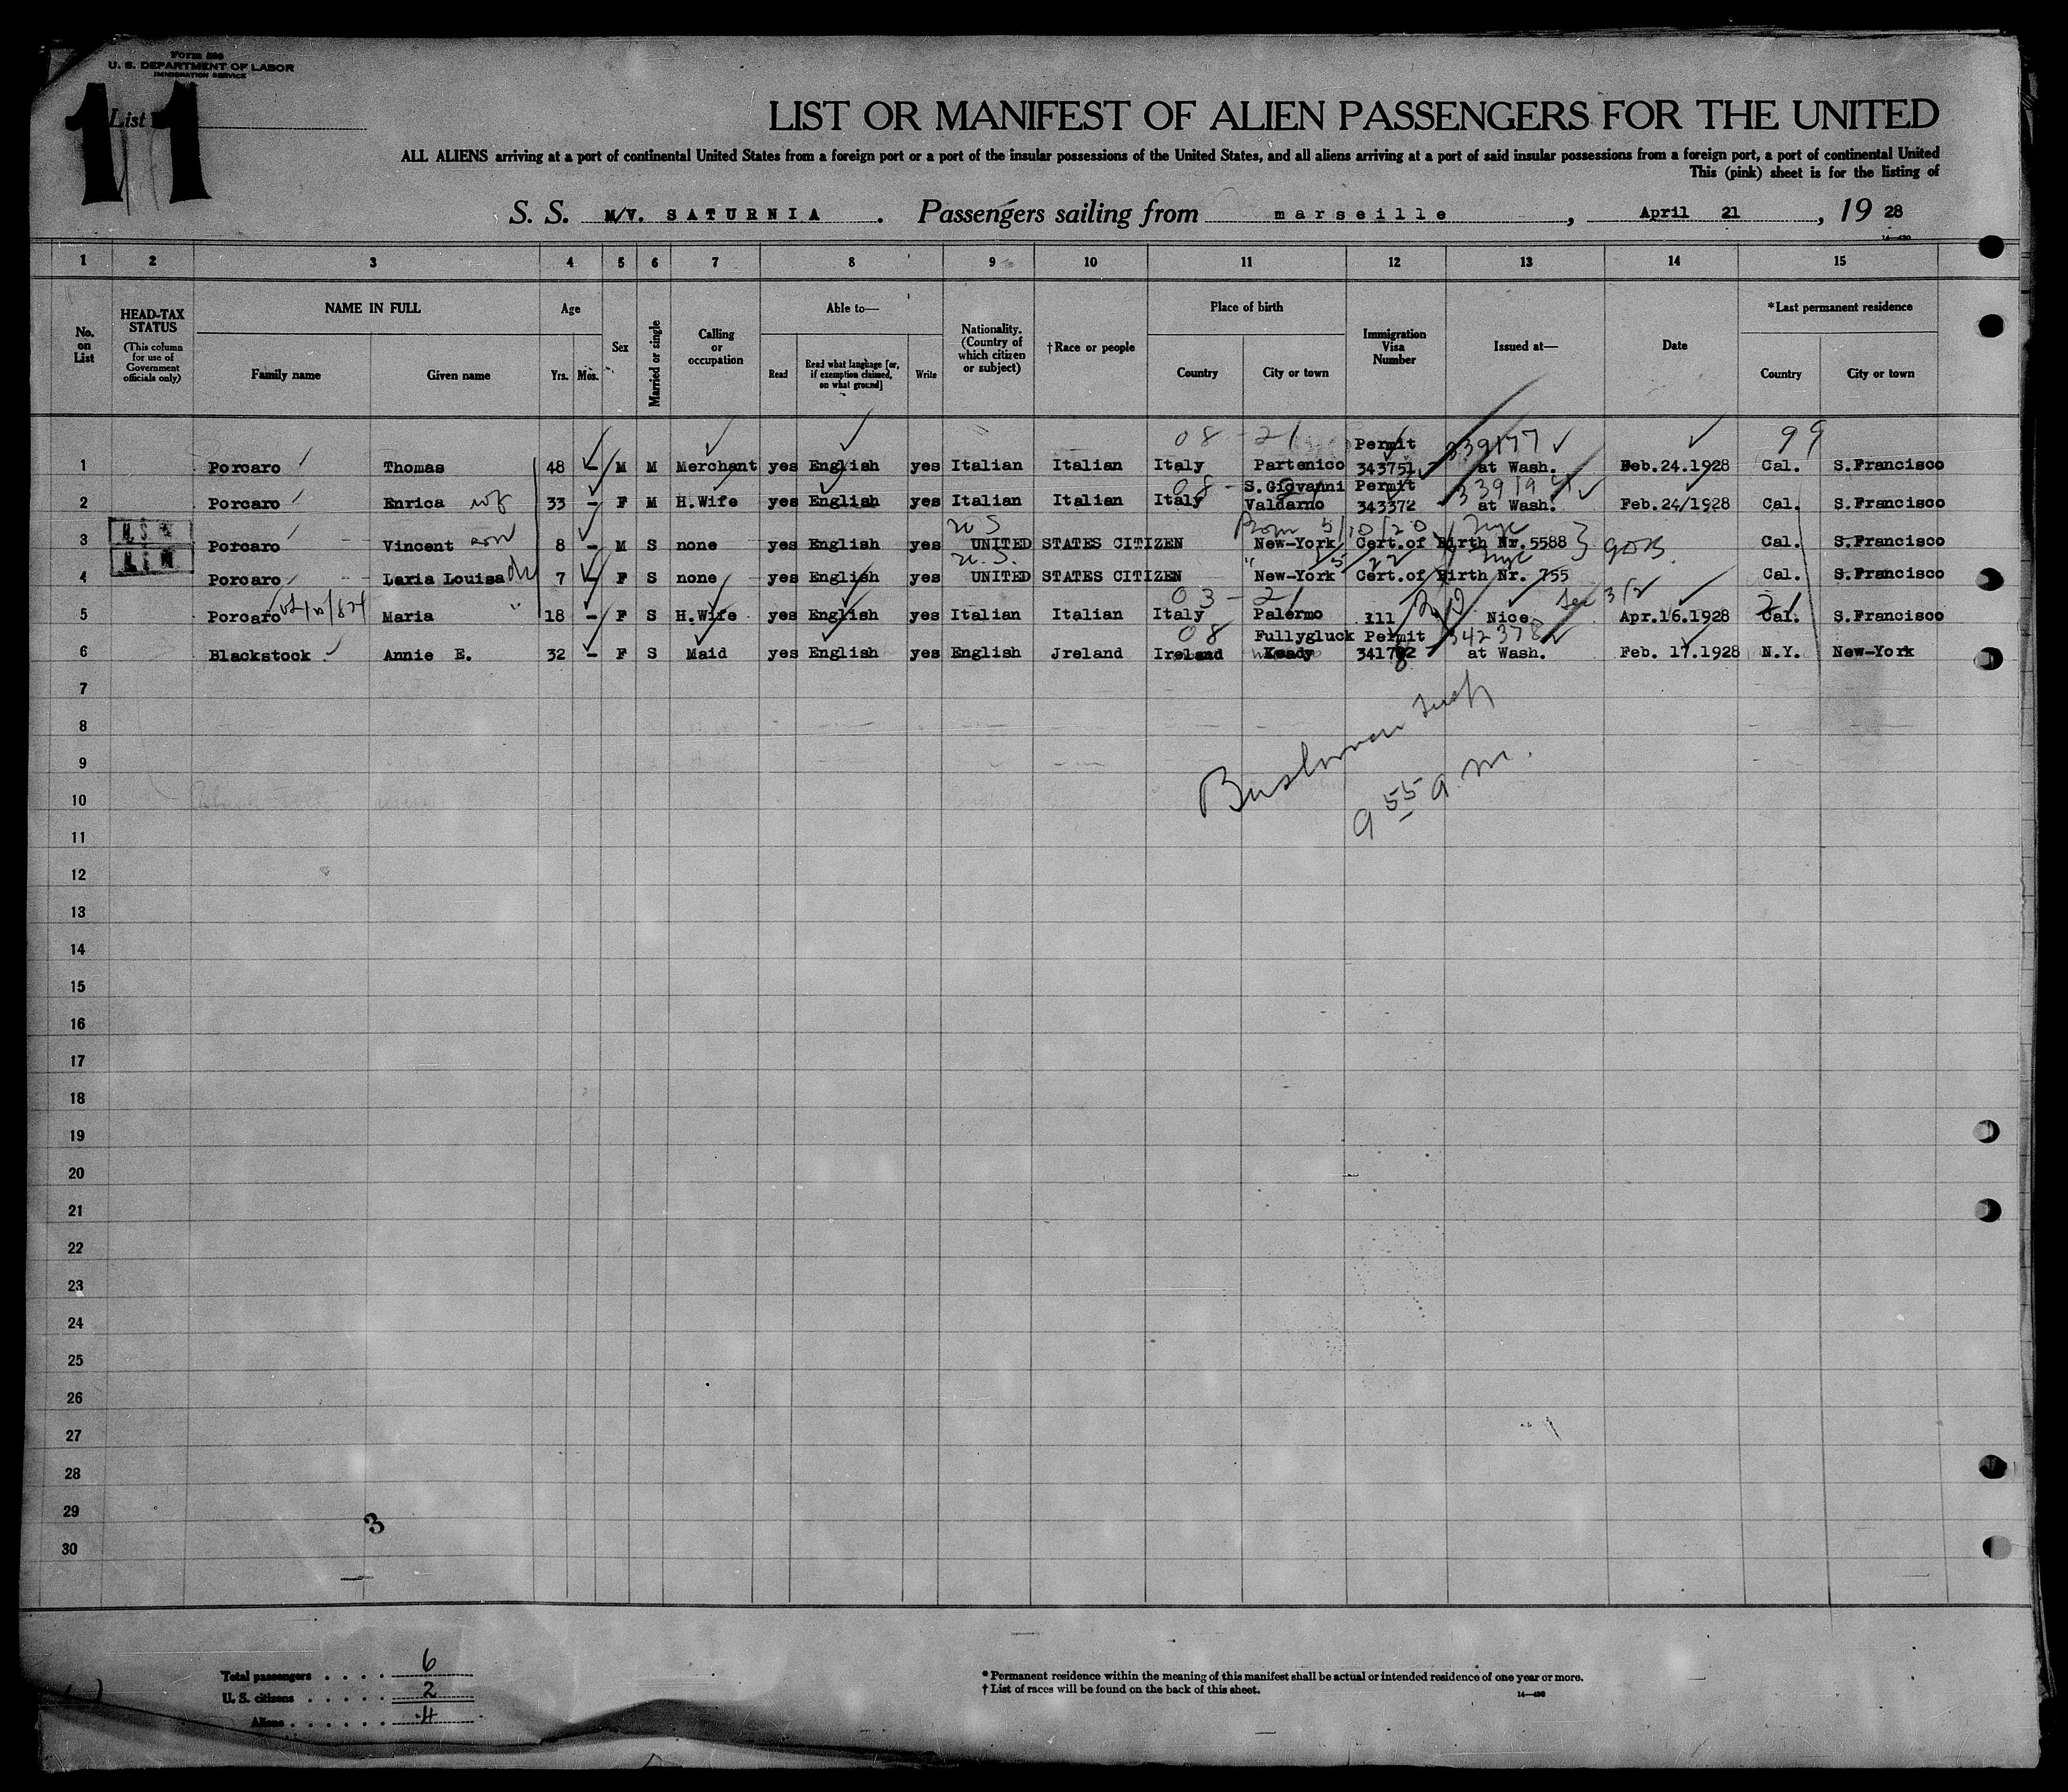 Form 500
U. S. DEPARTMENT OF LABOR
IMMIGRATION SERVICE
List
11
LIST OR MANIFEST OF ALIEN PASSENGERS FOR THE UNITED
ALL ALIENS arriving at a port of continental United States from a foreign port or a port of the insular possessions of the United States, and all aliens arriving at a port of said insular possessions from a foreign port, a port of continental United
This (pink) sheet is for the listing of
S. S. M/V. SATURNIA . Passengers sailing from marseille , April 21 , 19 28
1 2 3 4 5 6 7 8 9 10 11 12 13 14 15
No. on List
HEAD-TAX STATUS
(This column for use of Government officials only)
NAME IN FULL
Family name Given name
Age
Yrs. Mos.
Sex
Married or single
Calling or occupation
Able to—
Read Read what language [or, if exemption claimed, on what ground] Write
Nationality. (Country of which citizen or subject)
†Race or people
Place of birth
Country City or town
Immigration Visa Number
Issued at—
Date
*Last permanent residence
Country City or town
08 - 21 Permit 339177 99
1 Porcaro Thomas 48 - M M Merchant yes English yes Italian Italian Italy Partenico 343751 at Wash. Feb.24.1928 Cal. S.Francisco
08 - S.Giovanni Permit
2 Porcaro Enrica wf 33 - F M H.Wife yes English yes Italian Italian Italy Valdarno 343372 at Wash. Feb.24/1928 Cal. S.Francisco
U S Born 5/18/20 Nyc
3 Porcaro Vincent son 8 - M S none yes English yes UNITED STATES CITIZEN New-York Cert.of Birth Nr.5588 Cal. S.Francisco
U.S. Nyc
4 Porcaro Laria Louisa 7 - F S none yes English yes UNITED STATES CITIZEN New-York Cert.of Birth Nr. 755 Cal. S.Francisco
03 - 21 Sec 3/2
5 Porcaro Maria 18 - F S H.Wife yes English yes Italian Italian Italy Palermo 111 Nice Apr.16.1928 Cal. S.Francisco
08 Fullygluck Permit 342378
6 Blackstock Annie E. 32 - F S Maid yes English yes English Jreland Ireland Keady at Wash. Feb. 17.1928 N.Y. New-York
7
8
9
10
9 55 a.m.
11
12
13
14
15
16
17
18
19
20
21
22
23
24
25
26
27
28
29
3
30
Total passengers . . . . 6
U. S. citizens . . . . . 2
Aliens . . . . . . 4
*Permanent residence within the meaning of this manifest shall be actual or intended residence of one year or more.
†List of races will be found on the back of this sheet.